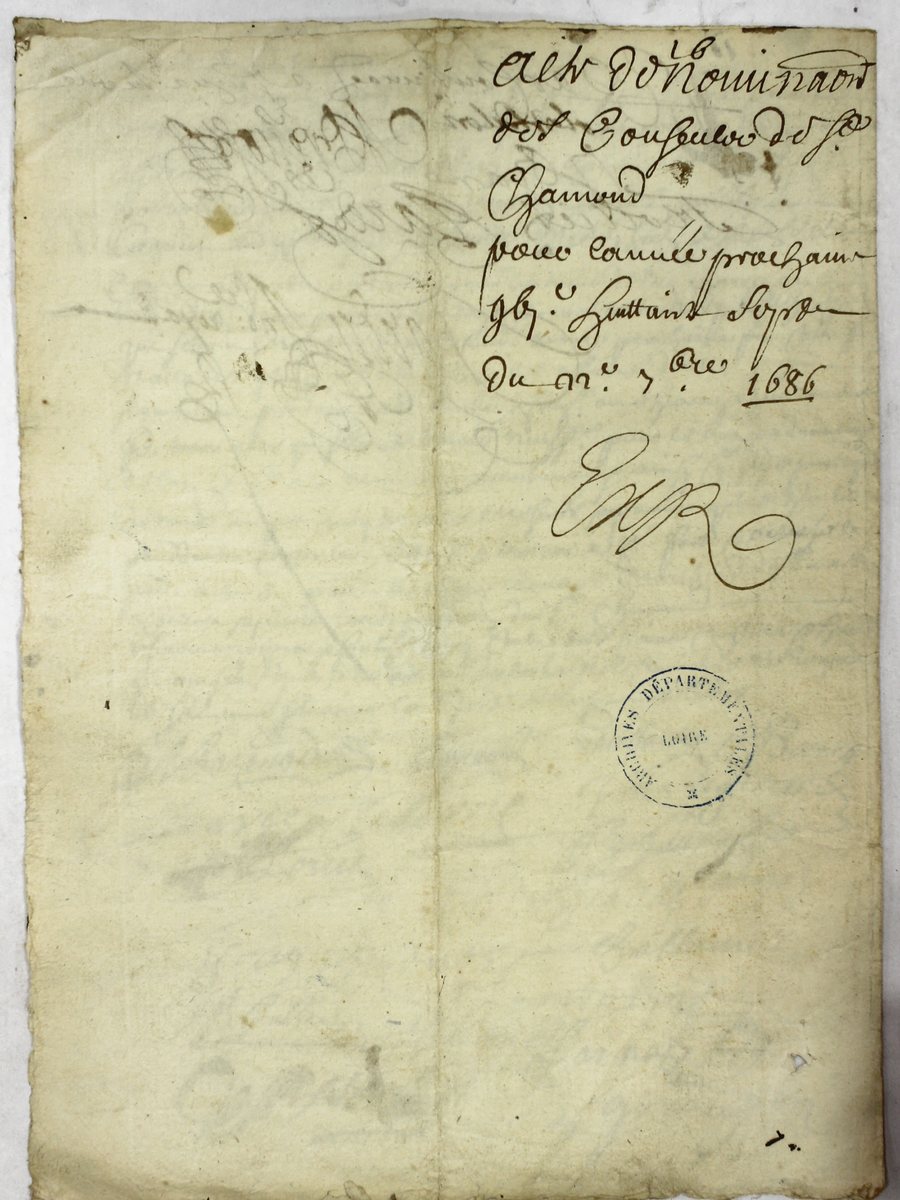 16
Acte de nominaon
des Conseulz de St
Chamond
pour l'année prochaine
gbj.c huittante Sept
Du 22.e 7bre 1686
ExpR
ARCHIVES DÉPARTEMENTALES
LOIRE
7